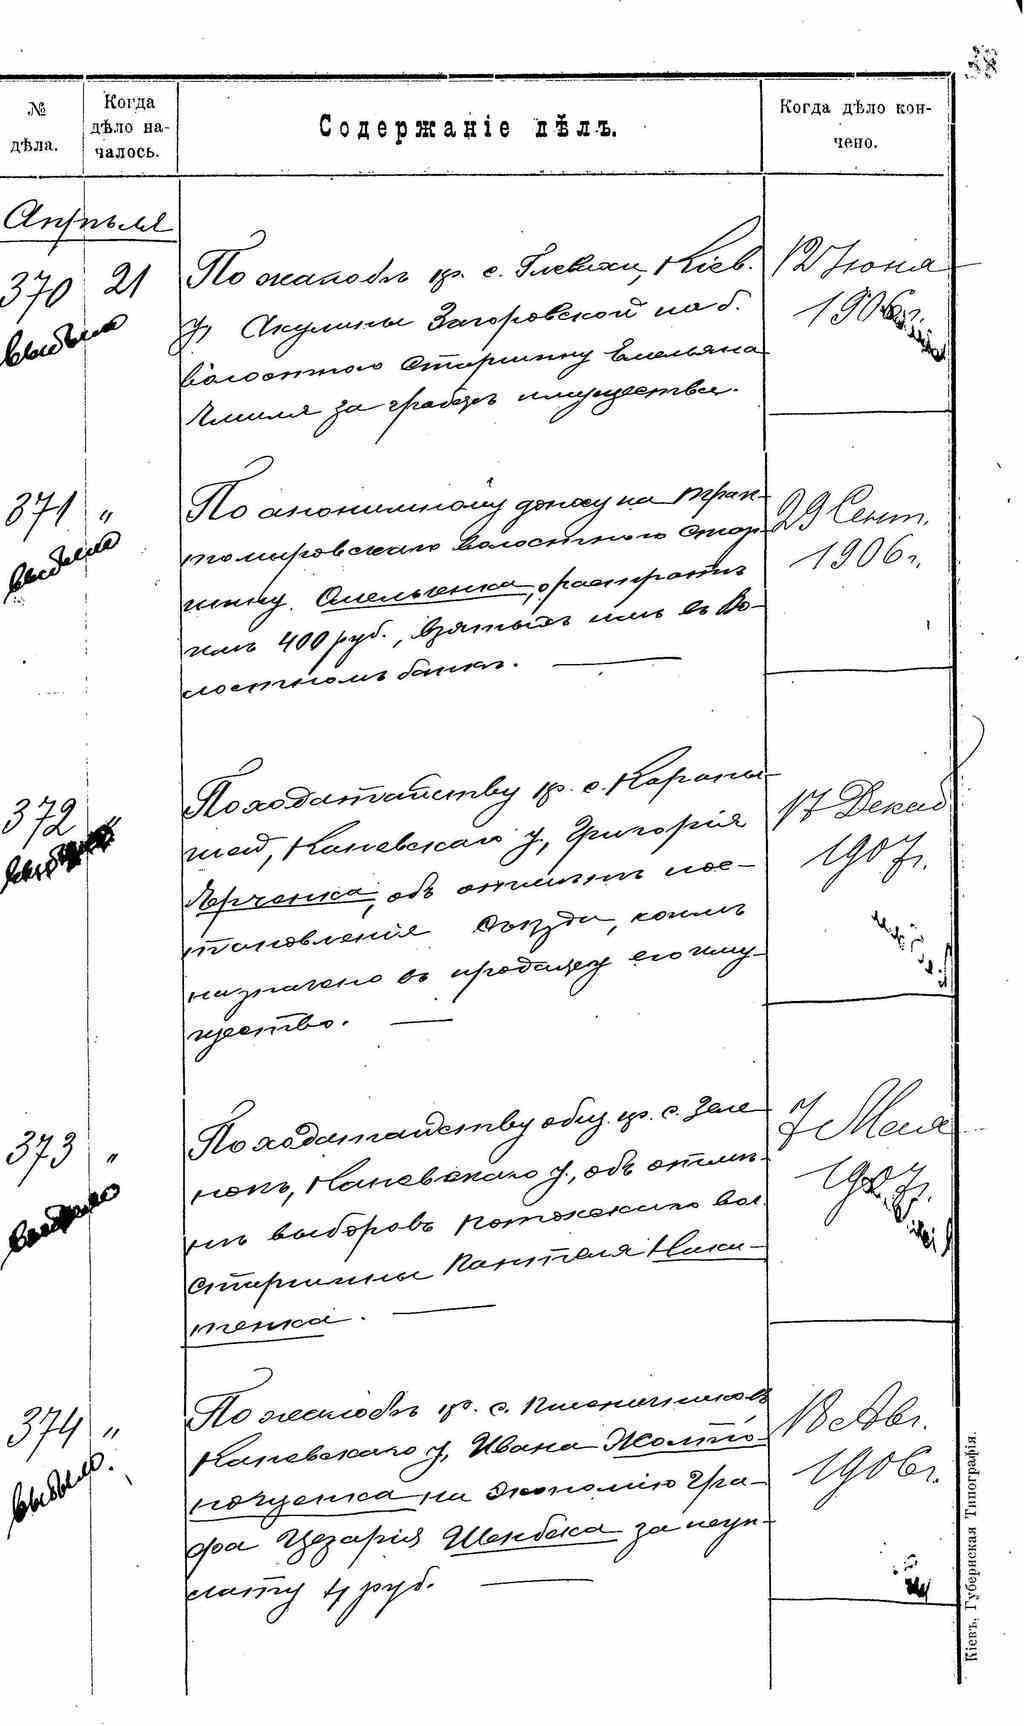 38
№ дѣла.
Когда дѣло на-чалось.
Содержаніе дѣлъ.
Когда дѣло кон-чено.
Апрѣля
370 21
выбыло
По жалобѣ кр. с. Глевахи, Кіев.
у, Акулины Загоровской на б.
волостного Старшину Емельяна
за грабежъ имущества.
12 Іюна
1906 г.
371 "
выбыло
По анонимному доносу на Трах-
томировскаго волостного Стар-
шину Омельченка, о растратѣ
имъ 400 руб., взятыхъ имъ въ Во-
лостномъ банкѣ.
29 Сент.
1906 г.
372 "
выбыло
По ходатайству кр. с. Караны-
шей, Каневскаго у, Григорія
Юрченка, объ отмѣнѣ пос-
тановленія Съѣзда, коимъ
назначено въ продажу его иму-
щество.
17 Декаб
1907 г.
373 "
выбыло
По ходатайству общ. кр. с. Зеле
нокъ, Каневскаго у, объ отмѣ-
нѣ выборовъ Потокскаго вол.
Старшины Пантеля Ники-
тенка.
7 Мая
1907 г.
374 "
выбыло.
По жалобѣ кр. с. Пшеничниковъ
Каневскаго у, Ивана Жолто-
ногценка на экономію Гра-
фа Цезарія Шенбека за неуп-
лату 4 руб.
18 Авг.
1906 г.
Кіевъ, Губернская Типографія.